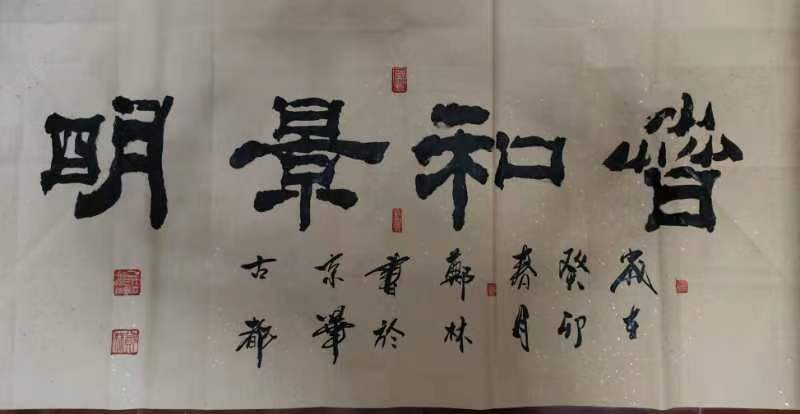 春和景明
歲在
癸卯
春月
鄭林
書於
京華
古都